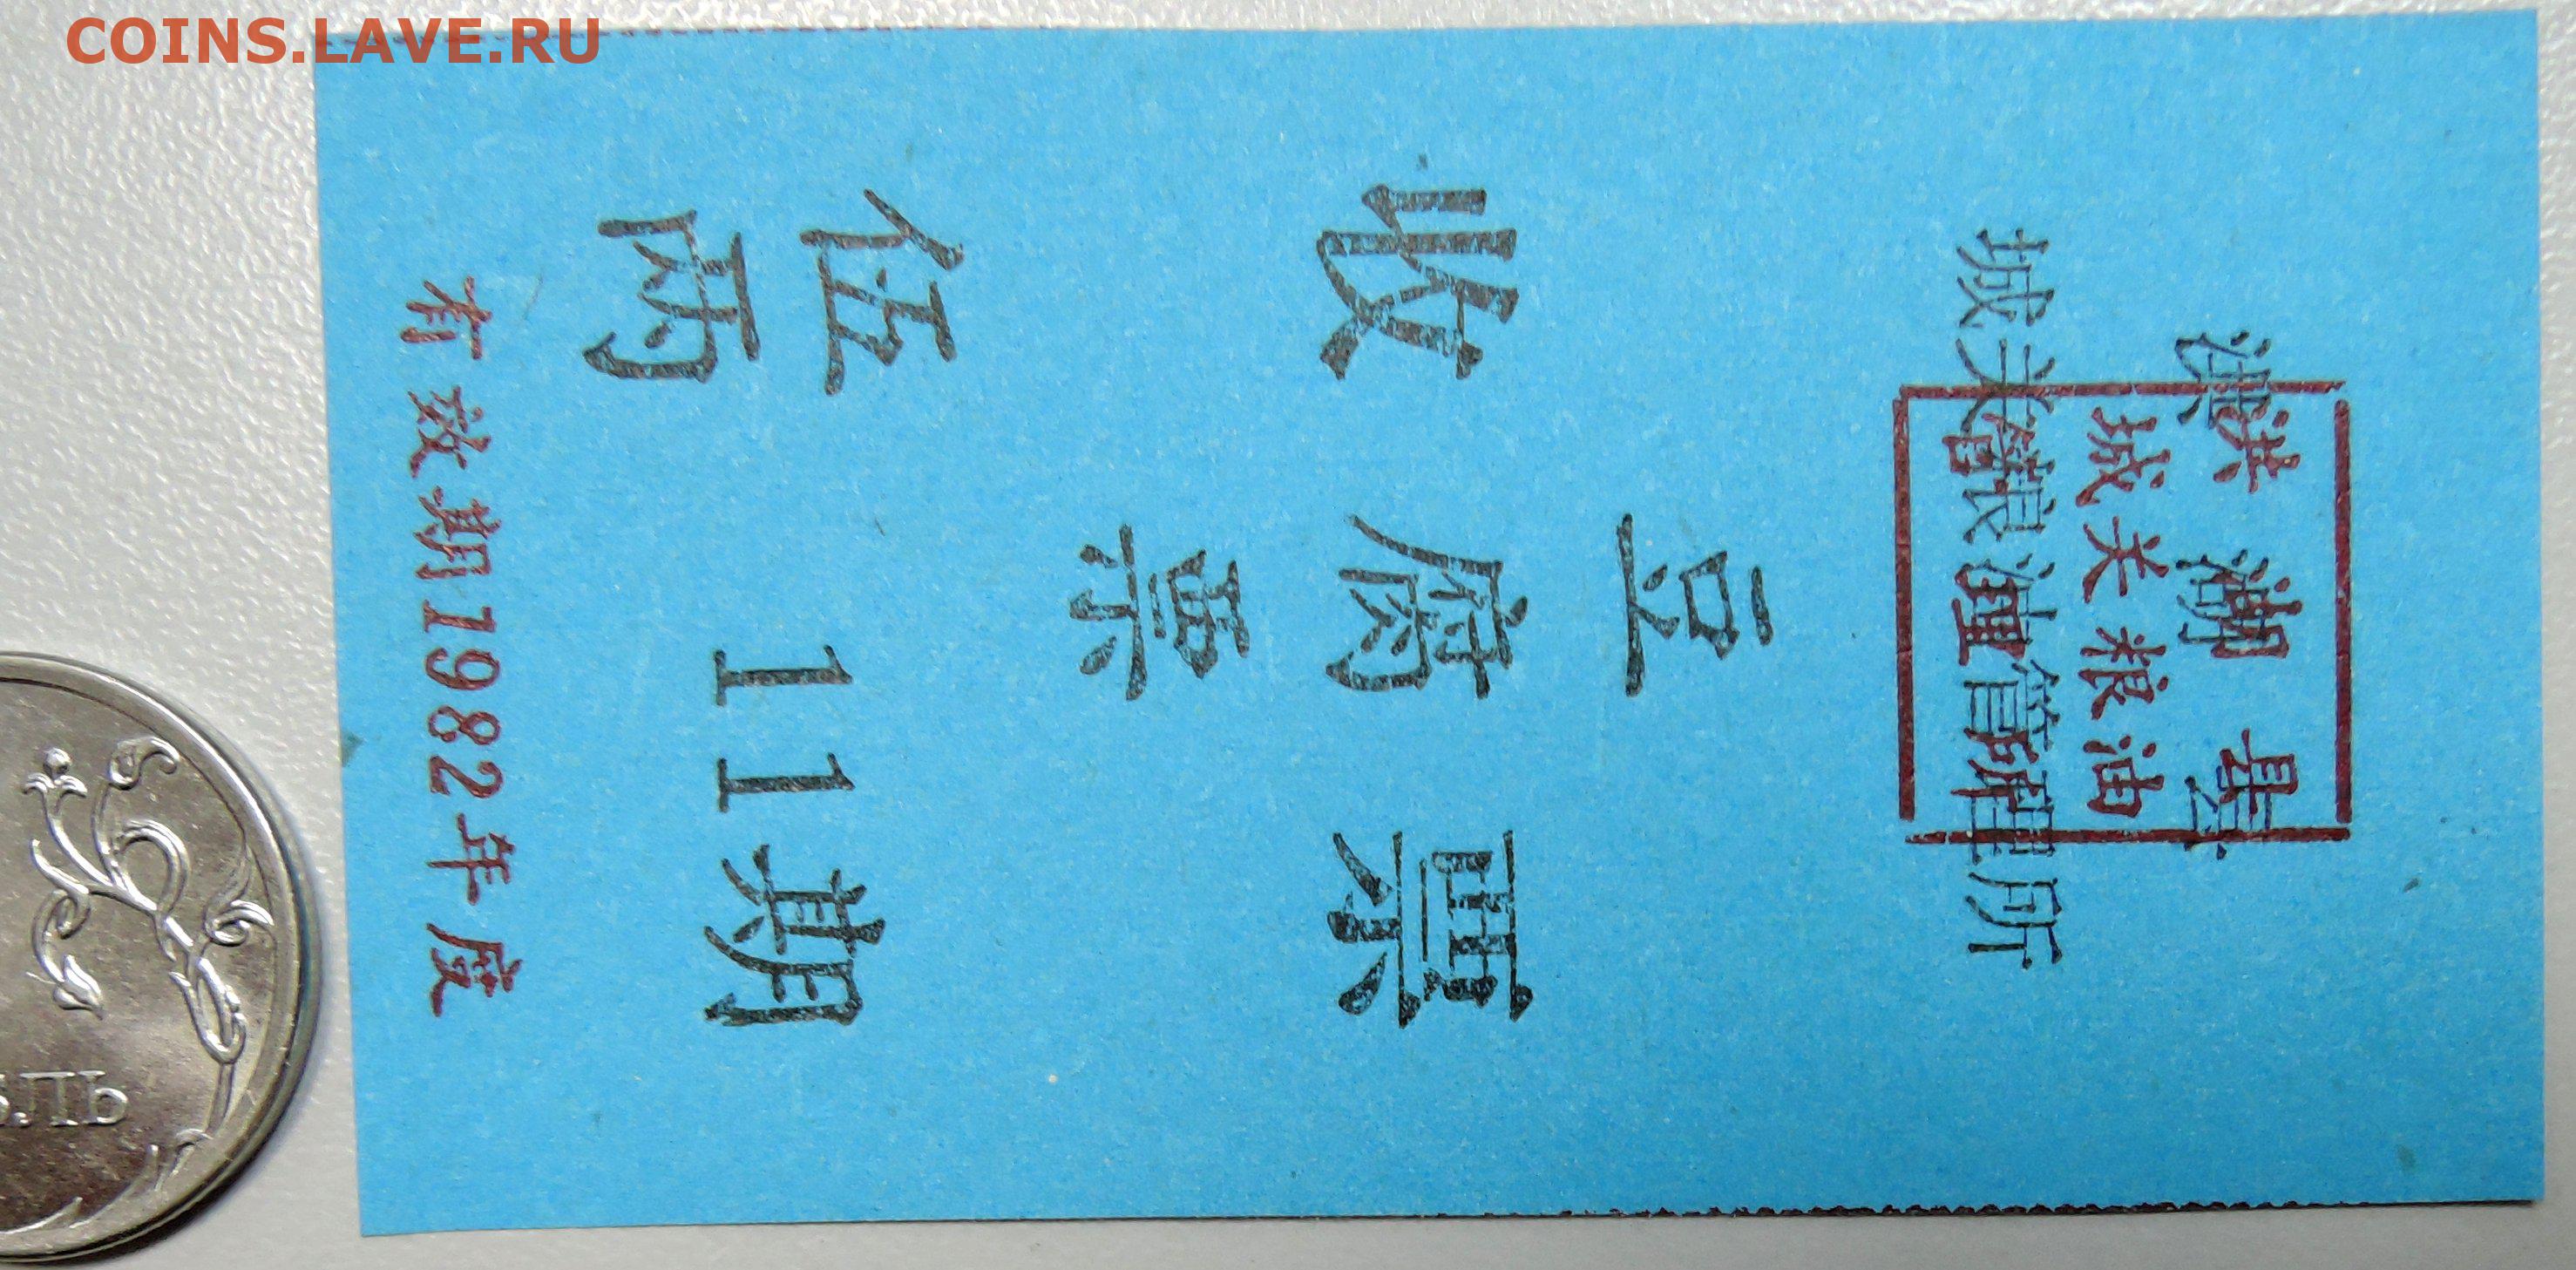 COINS.LAVE.RU
洪湖县
城关粮油管理所
洪湖县
城关粮油
管理所
豆
收腐票
票
伍两
11期
有效期1982年度